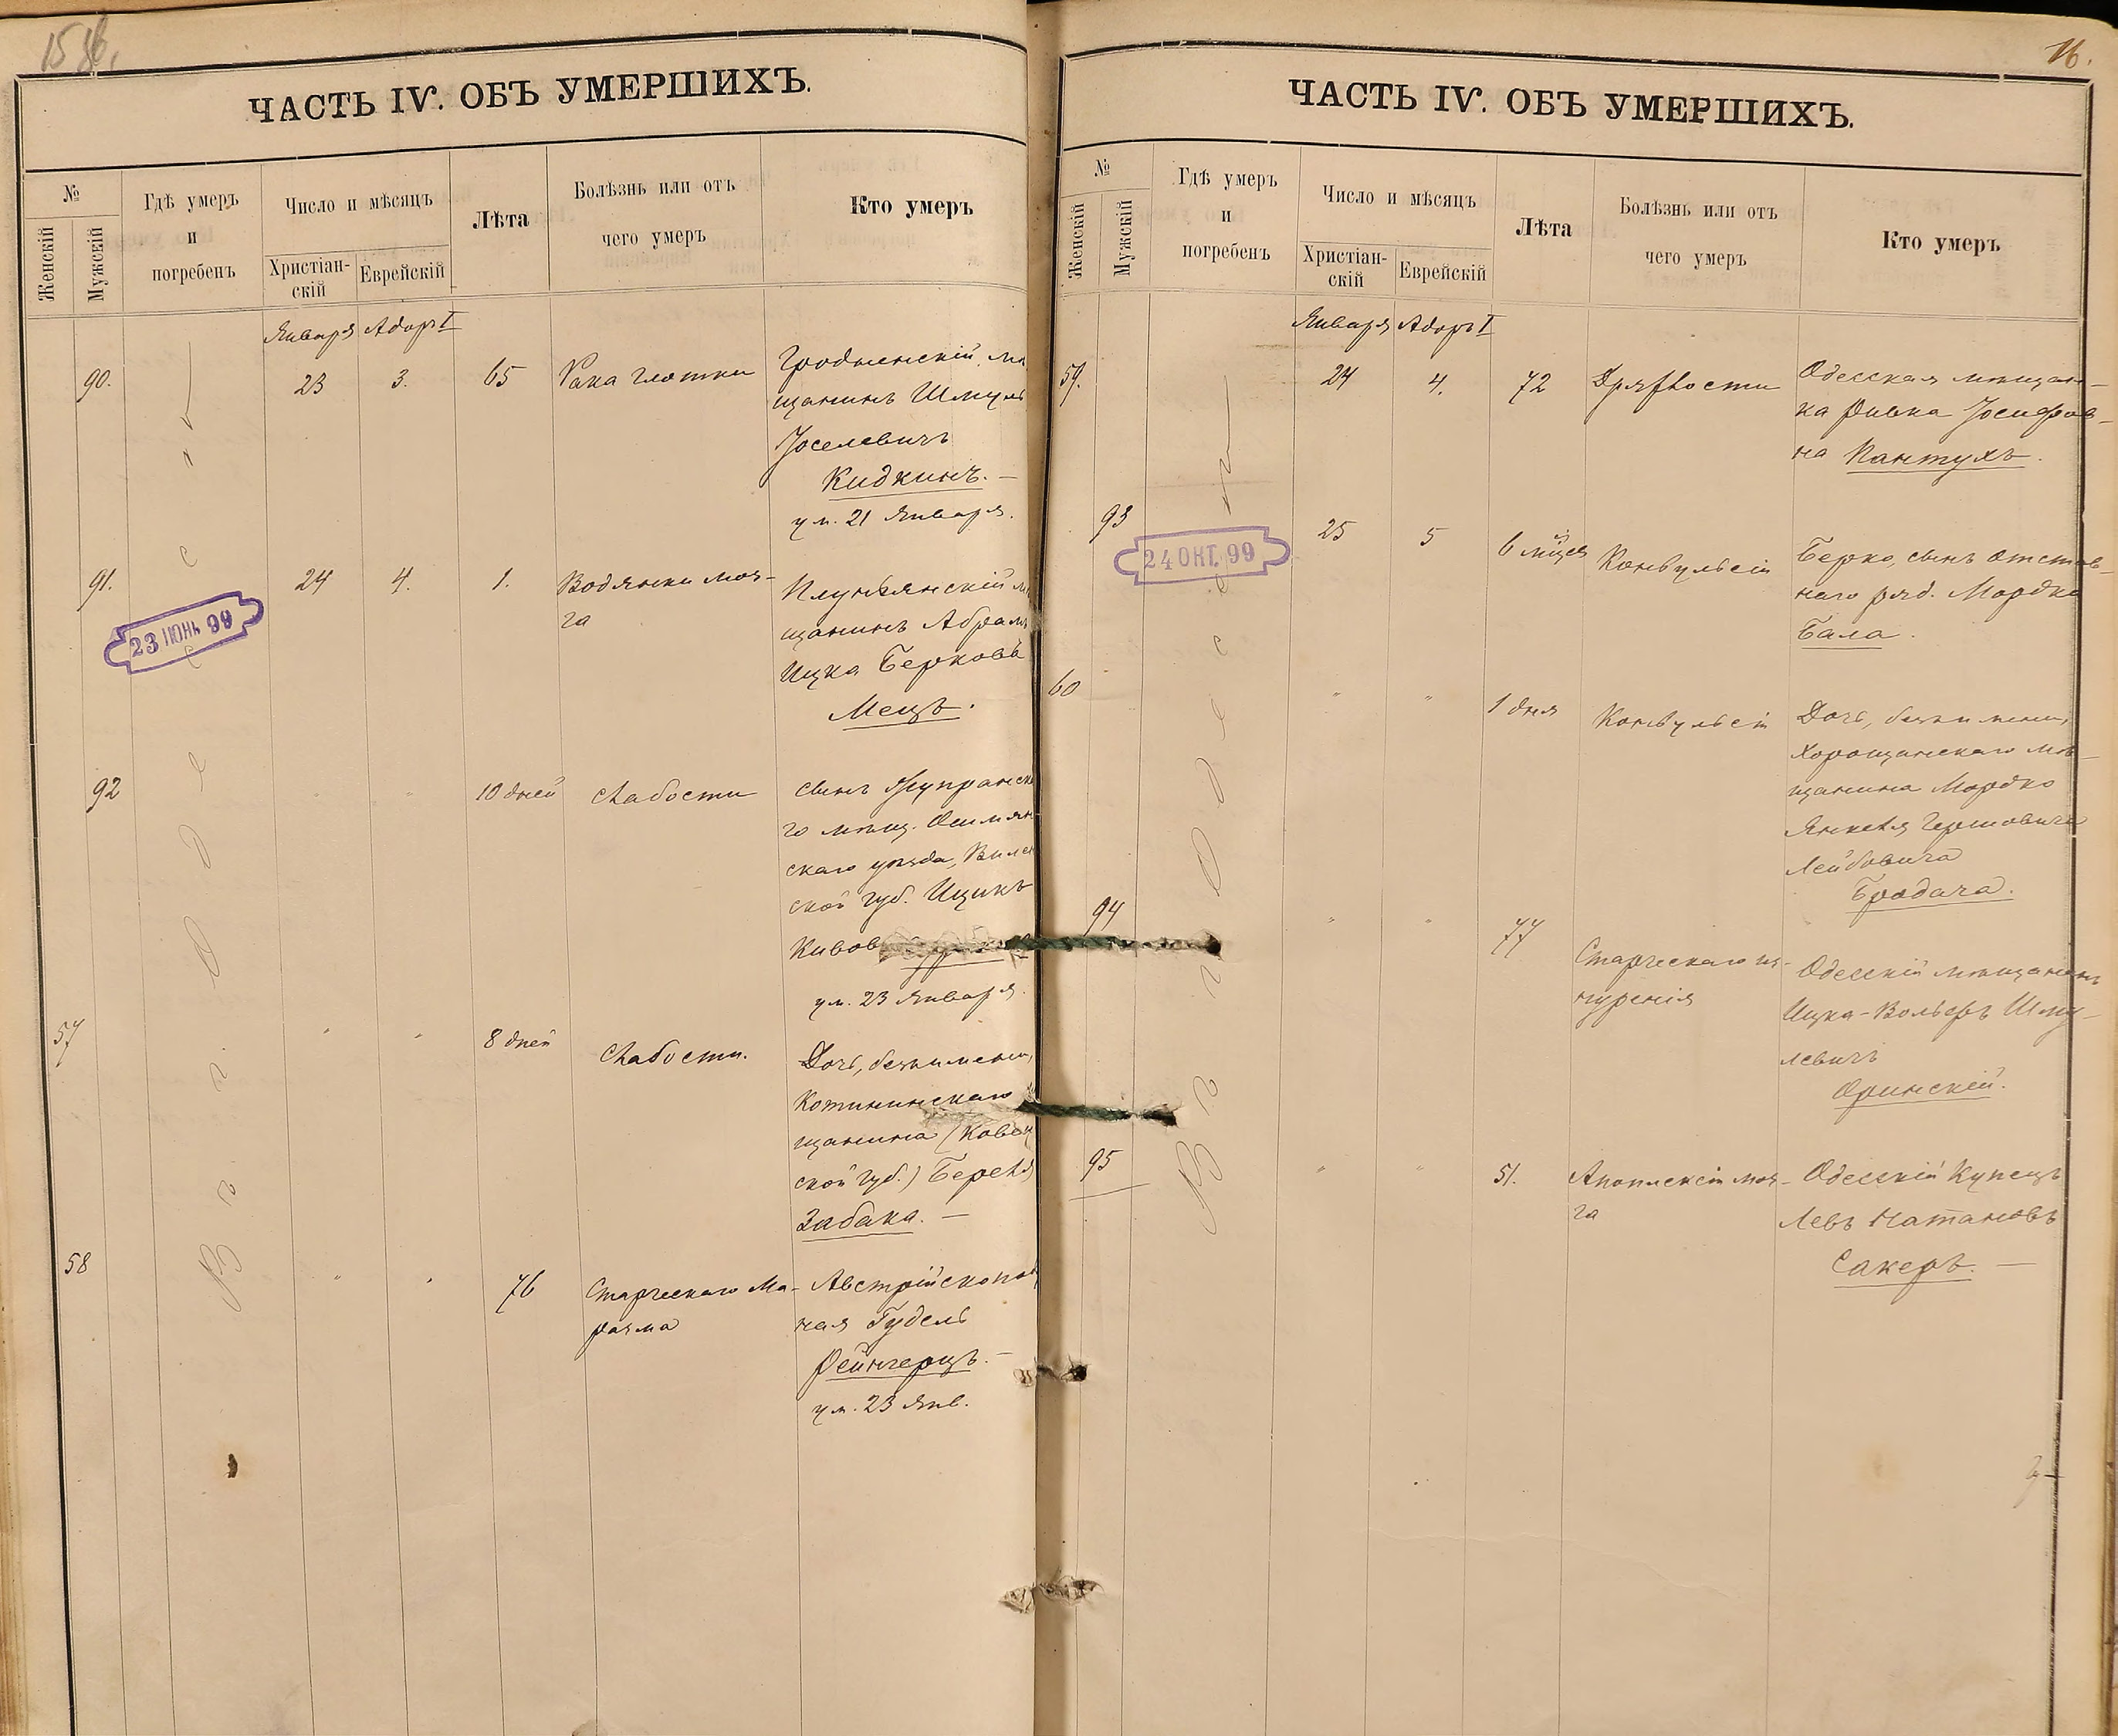 ЧАСТЬ IV. ОБЪ УМЕРШИХЪ.
№
Женскій
Мужскій
Гдѣ умеръ
и
погребенъ
Число и мѣсяцъ
Христіан-
скій
Еврейскій
Лѣта
Болѣзнь или отъ
чего умеръ
Кто умеръ
Января Адоръ I
90.
23
3.
65
Рака глотки
Гродненскій мѣ
щанинъ Шмуль
Іоселевичъ
Кидкинъ. —
ум. 21 Января.
91.
24
4.
1.
Водянки моз-
га
щанинъ Абрамъ
Ицка Берковъ
Мецъ.
23 ІЮНЬ 99
92
"
"
10 дней
слабости
сынъ
го мѣщ. Ошмян
скаго уѣзда, Вилен
ской губ. Ицикъ
Кивов
ум. 23 Января
57
"
"
8 дней
слабости.
Дочь, безъ имени,
щанина (Ковен
ской губ.) Береля
Забака. —
58
"
"
76
Старческаго Ма-
разма
Австрійскопод
ная Гудель
Рейнгерцъ. —
ум. 23 Янв.
Въ г. Одессѣ
16.
ЧАСТЬ IV. ОБЪ УМЕРШИХЪ.
№
Женскій
Мужскій
Гдѣ умеръ
и
погребенъ
Число и мѣсяцъ
Христіан-
скій
Еврейскій
Лѣта
Болѣзнь или отъ
чего умеръ
Кто умеръ
Января Адоръ I
59.
24
4.
72
Дряхлости
Одесская мѣщан-
ка Ривка Іосифов-
на Пантухъ.
93
25
5
6 мѣцев
Конвульсіи
Берко, сынъ отстав-
наго ряд. Мордко
Бала.
24 ОКТ. 99
60
"
"
1 дня
Конвульсіи
Дочь, безъ имени,
Хорощанскаго мѣ-
щанина Мордко
Янкеля Гершовича
Лейбовича
Бродача.
94
"
"
77
Старческаго из-
нуренія
Одесскій мѣщанинъ
Ицка-Вольфъ Шму-
левичъ
Оринскій.
95
"
"
51.
Апоплексіи моз-
га
Одесскій Купецъ
Левъ Натановъ
Сакеръ. —
Въ г. Одессѣ